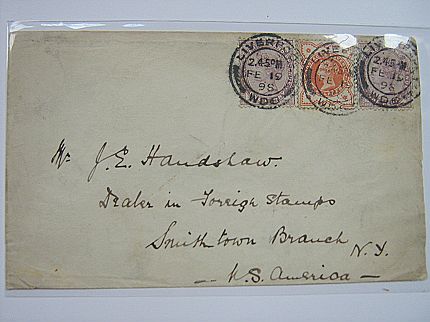 LIVERPOOL
2.45PM
FE 19
98
W.D.O.
LIVERPOOL
FE 19
LIVERPOOL
2.45PM
FE 19
98
W.D.O.
Mr J. E. Handshaw.
Dealer in Foreign Stamps
Smithtown Branch
N.Y.
U.S. America